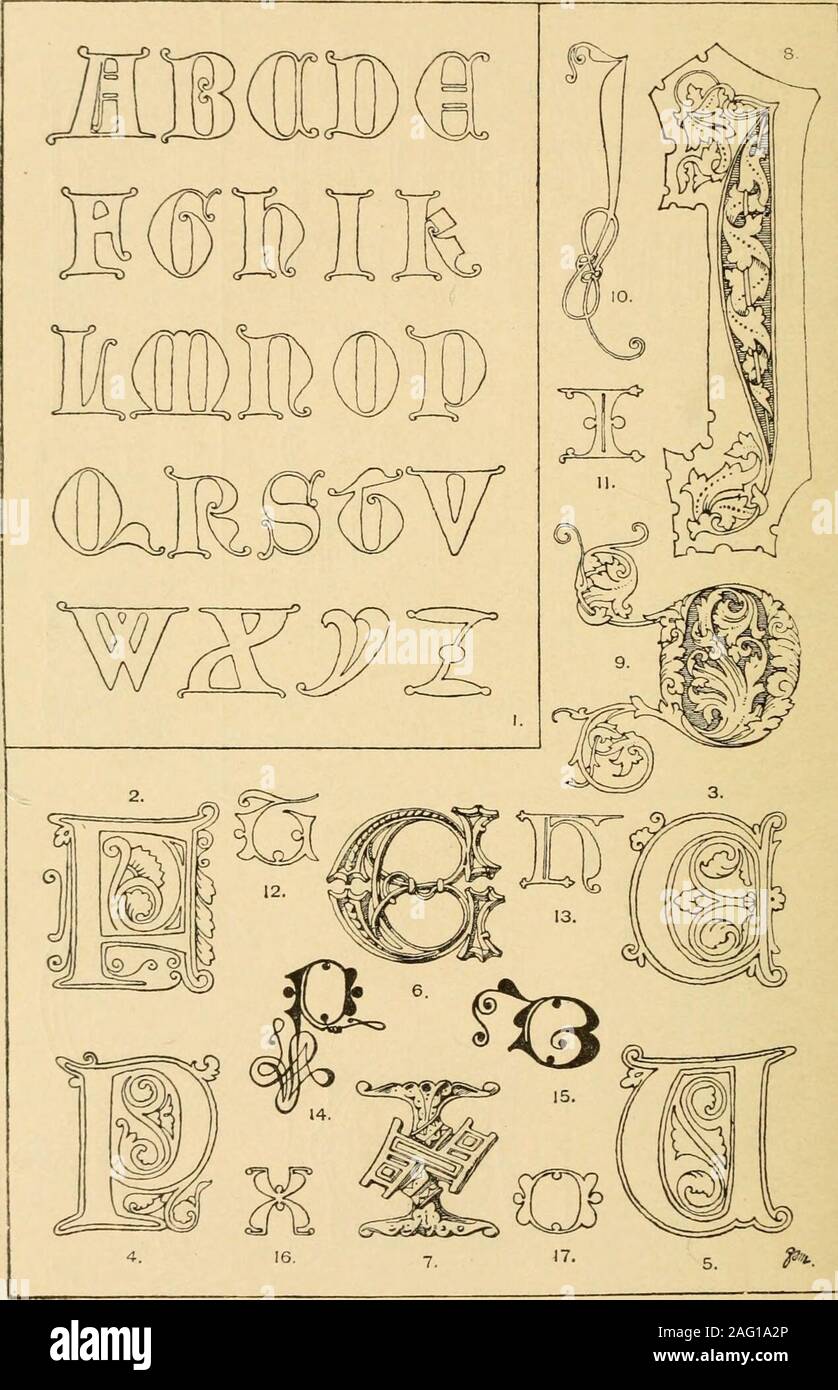 A B C D E
F G H I K
L M N O P
Q R S T V
W X Y Z
1.
8.
10.
11.
9.
2.
3.
12.
13.
6.
14.
15.
4.
16.
7.
17.
5.
alamy
Image ID: 2AG1A2P
www.alamy.com